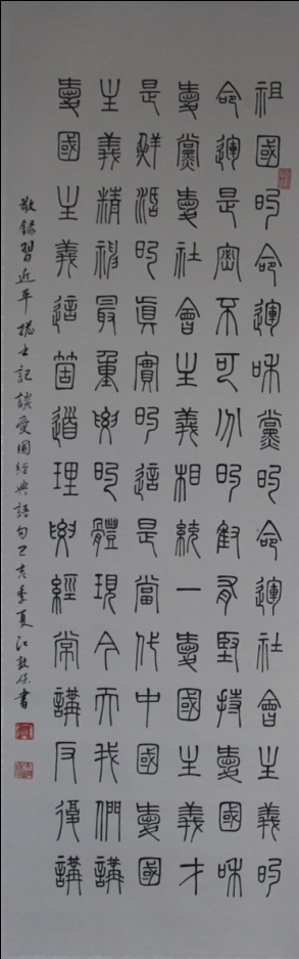 祖國的命運和黨的命運社會主義的
命運是密不可分的只有堅持愛國和
愛黨愛社會主義相統一愛國主義才
是鮮活的真實的這是當代中國愛國
主義精神最重要的體現今天我們講
愛國主義這箇道理要經常講反復講
敬錄習近平總書記談愛國經典語句己亥季夏江敬保書